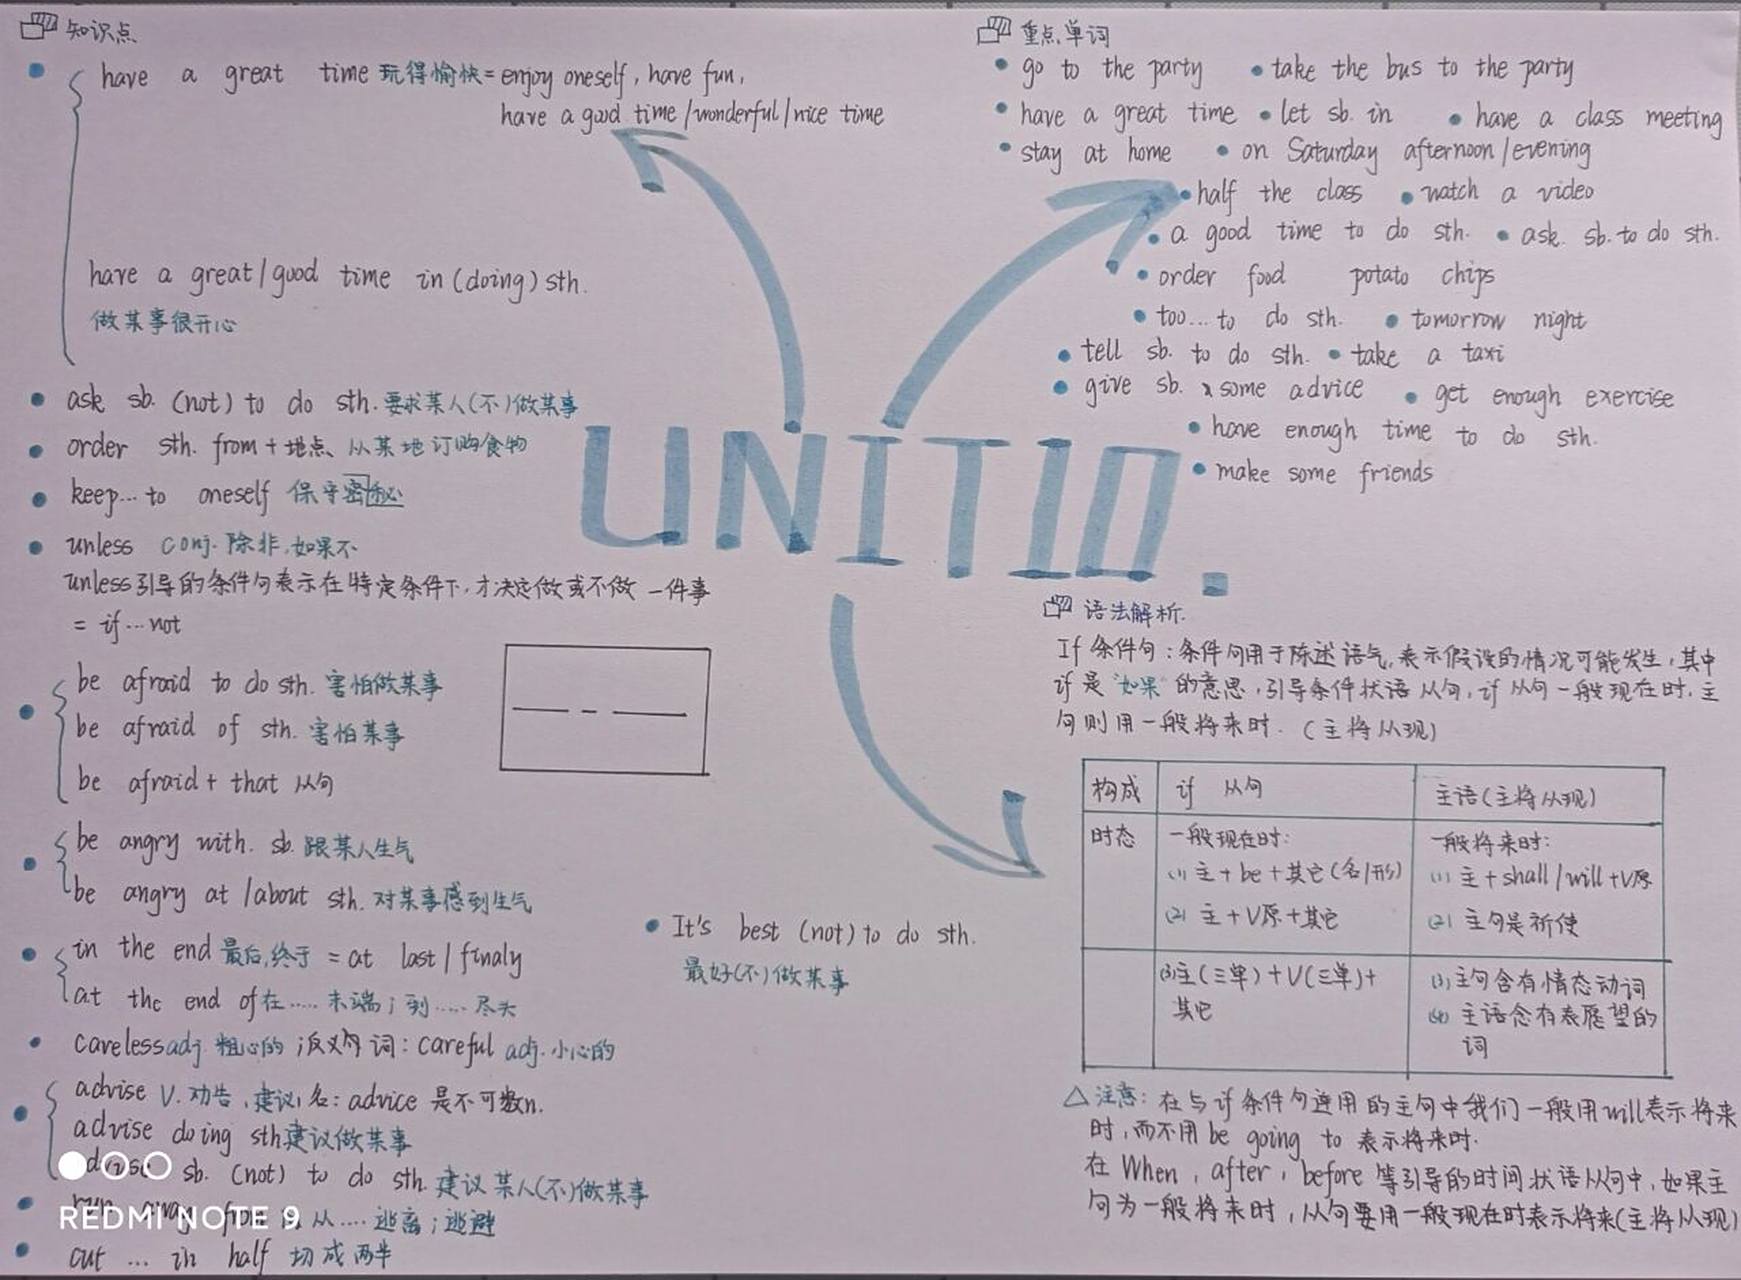 知识点
have a great time 玩得愉快=enjoy oneself, have fun,
have a good time/wonderful/nice time
have a great/good time in (doing) sth.
做某事很开心
ask sb. (not) to do sth. 要求某人(不)做某事
order sth. from+地点 从某地订购食物
keep...to oneself 保守密秘
unless conj. 除非,如果不
unless引导的条件句表示在特定条件下,才决定做或不做一件事
= if...not
be afraid to do sth. 害怕做某事
be afraid of sth. 害怕某事
be afraid + that 从句
be angry with. sb. 跟某人生气
be angry at /about sth. 对某事感到生气
in the end 最后,终于 = at last / finaly
at the end of 在……末端;到……尽头
careless adj. 粗心的 反义词: careful adj. 小心的
advise V. 劝告,建议 名: advice 是不可数n.
advise doing sth 建议做某事
advise sb. (not) to do sth. 建议某人(不)做某事
run away from 从…. 逃离;逃避
cut ... in half 切成两半
REDMI NOTE 9
It's best (not) to do sth.
最好(不)做某事
UNIT10.
重点单词
go to the party take the bus to the party
have a great time let sb. in have a class meeting
stay at home on Saturday afternoon/evening
half the class watch a video
a good time to do sth. ask. sb. to do sth.
order food potato chips
too...to do sth. tomorrow night
tell sb. to do sth. take a taxi
give sb. some advice get enough exercise
have enough time to do sth.
make some friends
语法解析.
If 条件句:条件句用于陈述语气,表示假设的情况可能发生,其中
if 是"如果"的意思,引导条件状语从句,if 从句一般现在时,主
句则用一般将来时.(主将从现)
构成 if 从句 主语(主将从现)
时态 一般现在时: 一般将来时:
(1) 主+be+其它(名/形) (1) 主+shall/will+V原
(2) 主+V原+其它 (2) 主句是祈使
(3)主(三单)+V(三单)+ (3)主句含有情态动词
其它 (4) 主语含有表愿望的
词
△注意: 在与 if 条件句连用的主句中我们一般用will表示将来
时,而不用be going to 表示将来时.
在 When, after, before 等引导的时间状语从句中,如果主
句为一般将来时,从句要用一般现在时表示将来(主将从现)